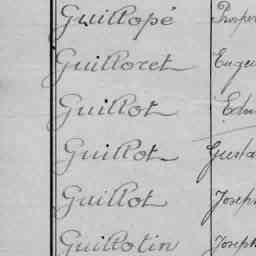 Guillopé Prosper
Guilloret Eugè
Guillot Edm
Guillot Gusta
Guillot Joseph
Guillotin Joseph